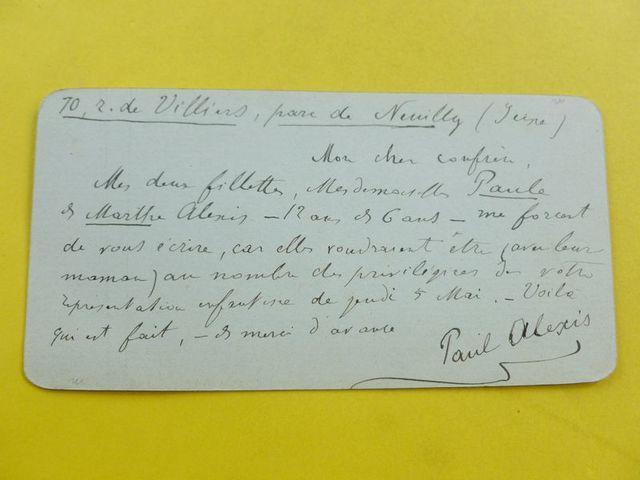 70, r. de Villiers, parc de Neuilly (Seine)
Mon cher confrère,
Mes deux fillettes, Mesdemoiselles Paule
et Marthe Alexis – 12 ans et 6 ans – me forcent
de vous écrire, car elles voudraient être (avec leur
maman) au nombre des privilégiées de votre
représentation enfantine de jeudi 5 Mai. – Voilà
qui est fait, – et merci d'avance
Paul Alexis